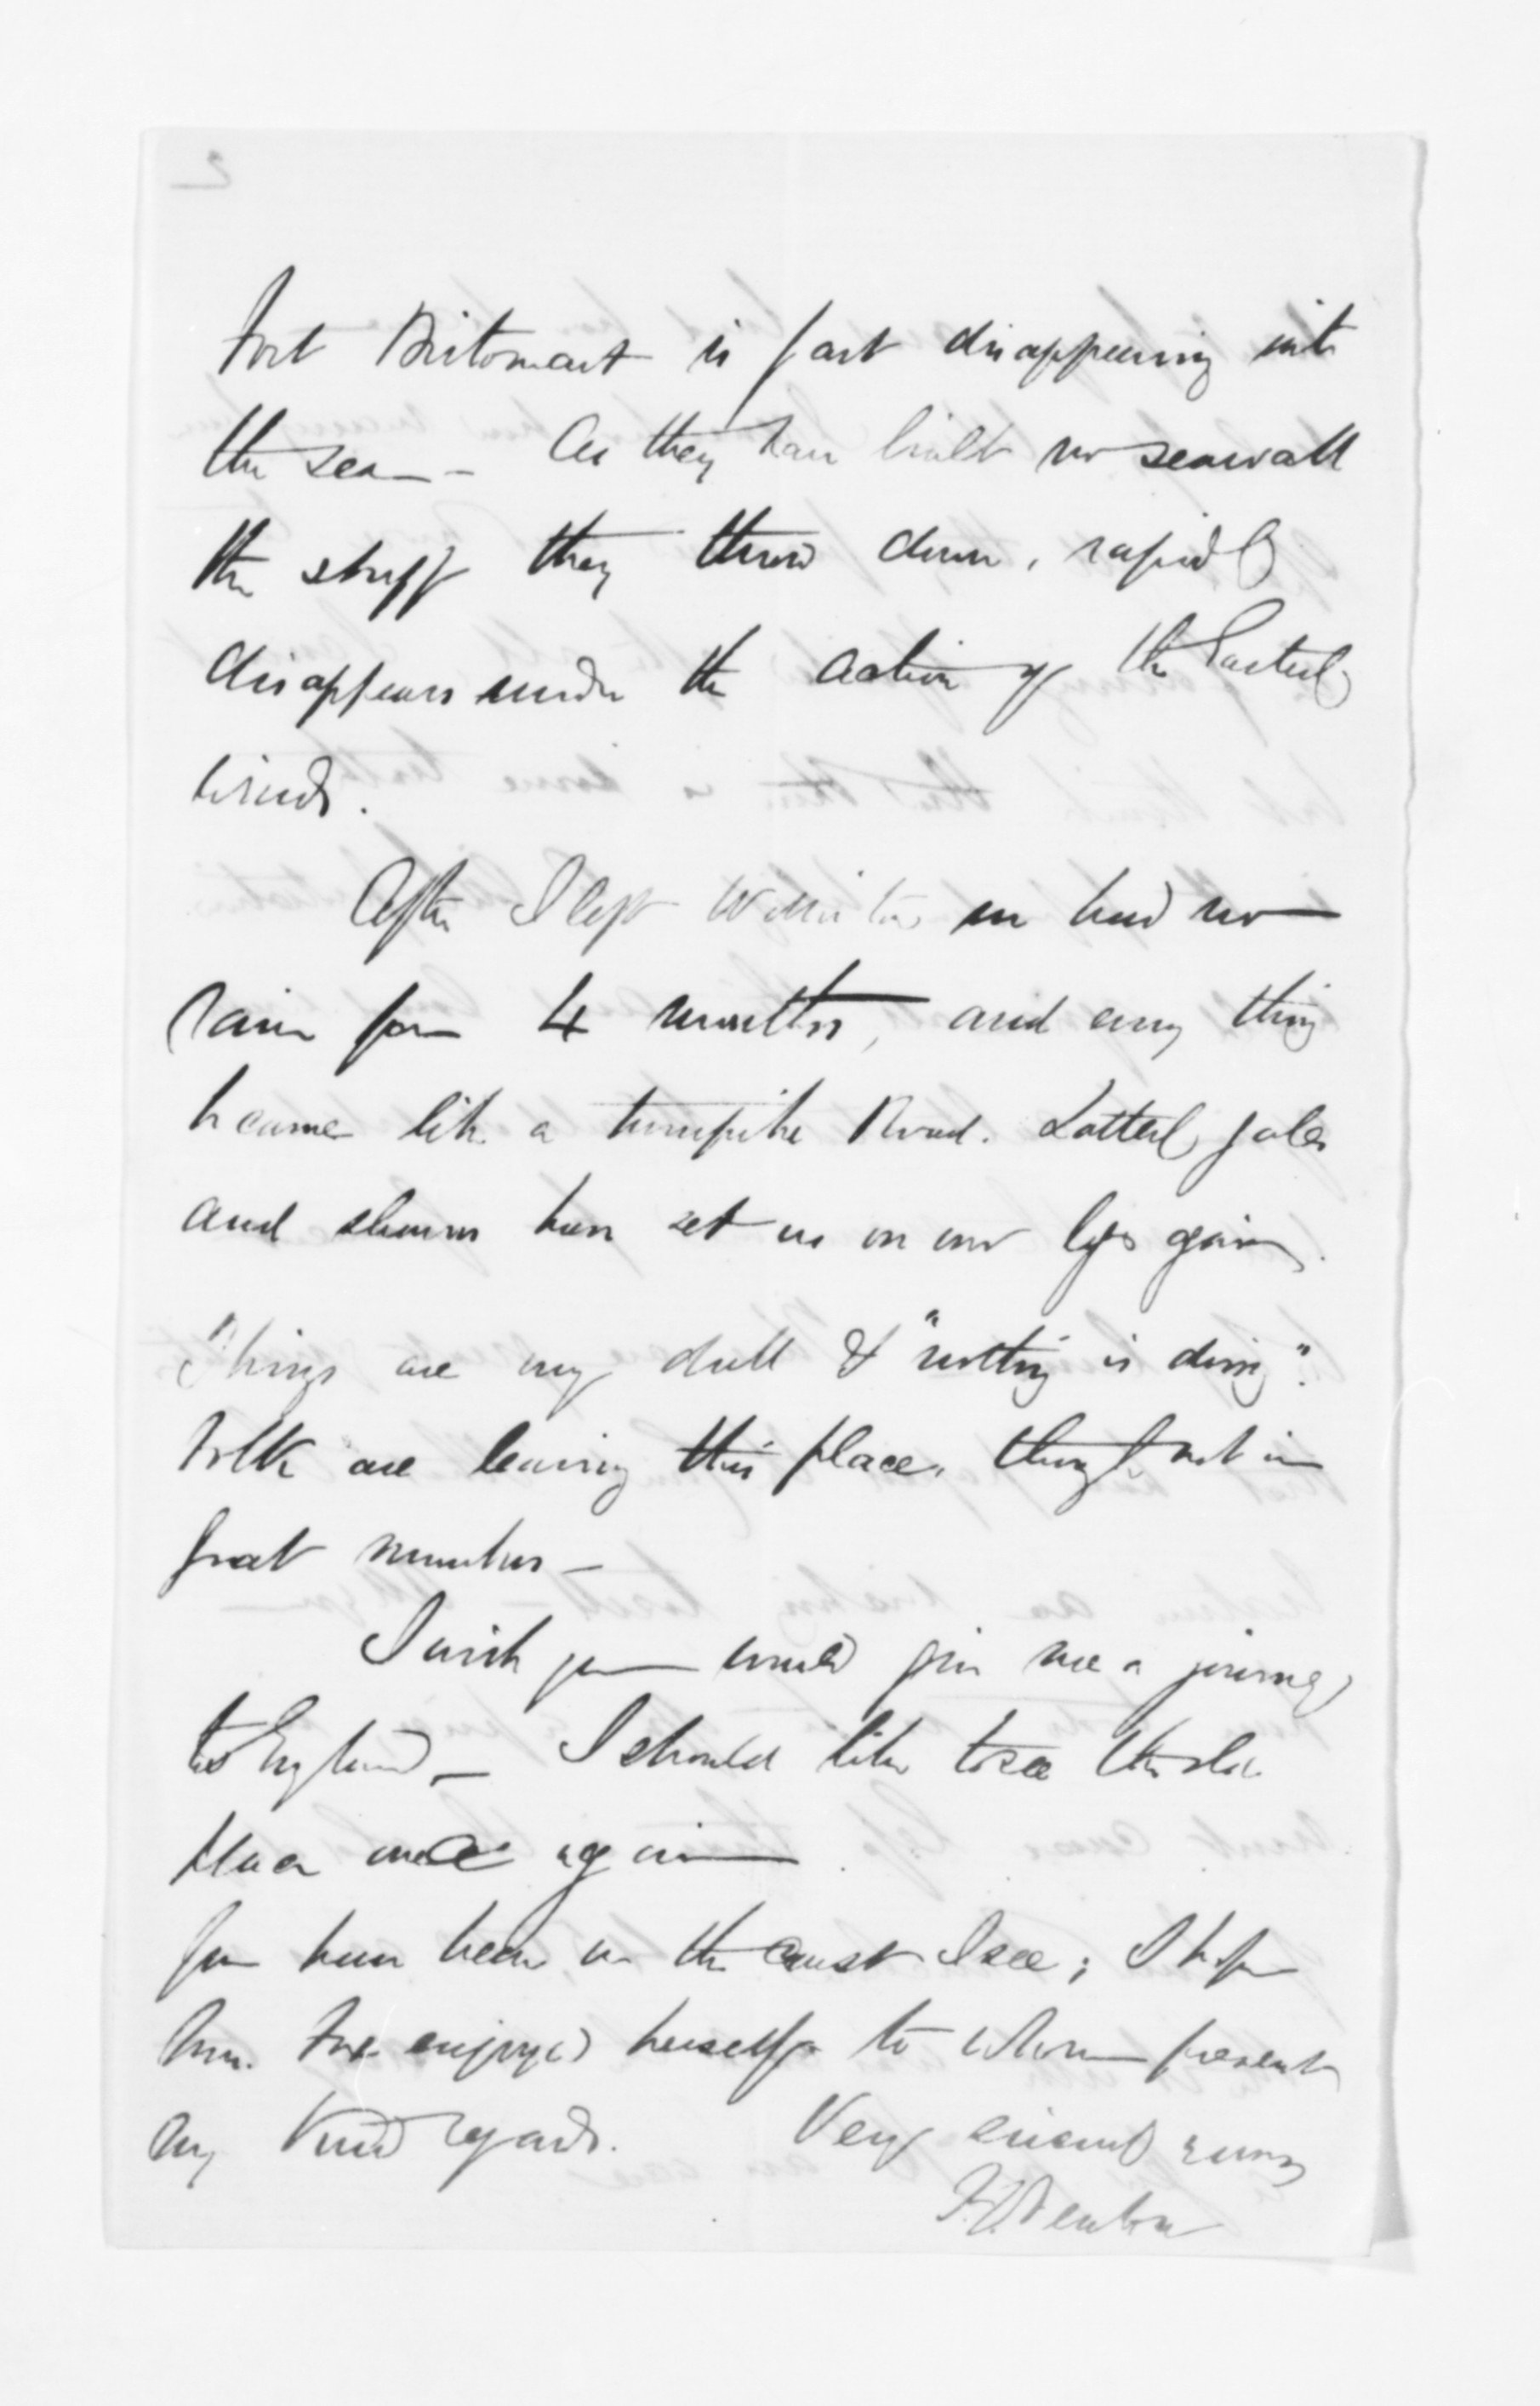 Fort Britomart is fast disappearing into
the sea — As they have built no seawall
the stuff they throw down, rapidly
disappears under the action of the Easterly
winds.
After I left Wellington we had no
rain for 4 months, and every thing
became like a turnpike Road. Latterly gales
and showers have set us on our legs again.
Things are very dull & "nothing is doing".
Folk are leaving this place, though not in
great numbers —
I wish you would give me a journey
to England — I should like to see the old
place once again
You have been on the coast I see; I hope
Mrs. Fox enjoyed herself to whom present
my kind regards. Very sincerely yours